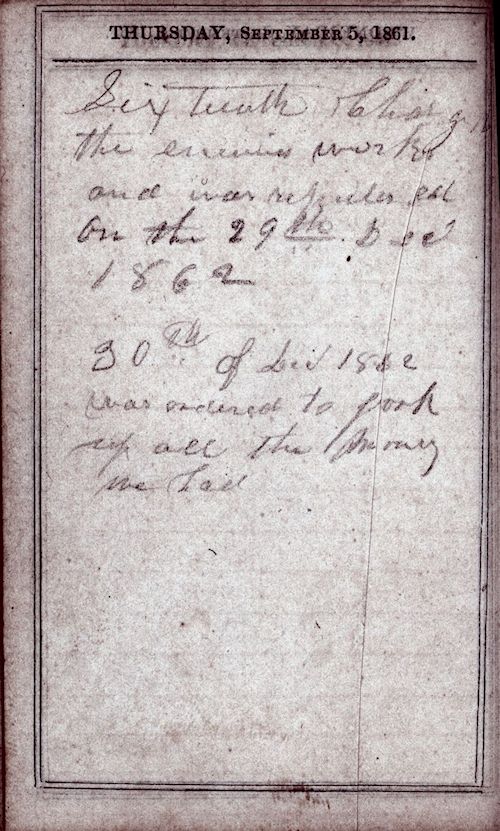 THURSDAY, SEPTEMBER 5, 1861.
Sixteenth Charg
the enemies works
and was repulsed
On the 29th Decd
1862
30th of Decd 1862
was ordered to
up all the money
we had